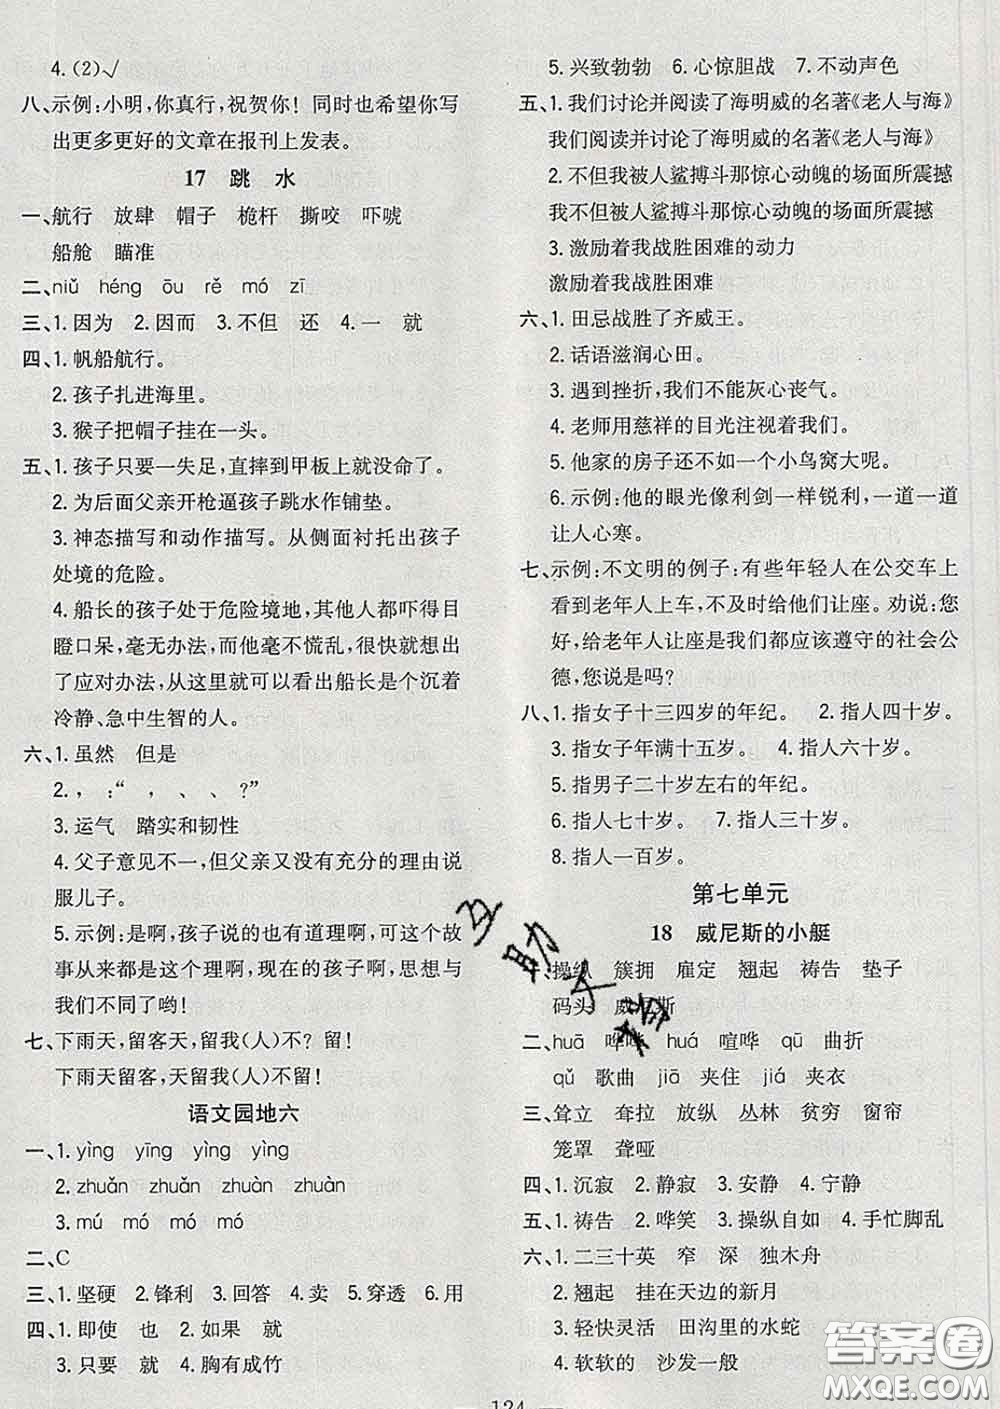 4.(2)√
八、示例:小明,你真行,祝贺你! 同时也希望你写
出更多更好的文章在报刊上发表。
17 跳 水
一、航行 放肆 帽子 桅杆 撕咬 吓唬
船舱 瞄准
二、niǔ héng ōu rě mó zī
三、1.因为 2.因而 3.不但 还 4.一 就
四、1.帆船航行。
2.孩子扎进海里。
3.猴子把帽子挂在一头。
五、1.孩子只要一失足,直摔到甲板上就没命了。
2.为后面父亲开枪逼孩子跳水作铺垫。
3.神态描写和动作描写。从侧面衬托出孩子
处境的危险。
4.船长的孩子处于危险境地,其他人都吓得目
瞪口呆,毫无办法,而他毫不慌乱,很快想出
了应对办法,从这里就可以看出船长是个沉着
冷静、急中生智的人。
六、1.虽然 但是
2., :“ , 、 、 ?”
3.运气 踏实和韧性
4.父子意见不一,但父亲又没有充分的理由说
服儿子。
5.示例:是啊,孩子说的也有道理啊,可这个故
事从来都是这个理啊,现在的孩子啊,思想与
我们不同了哟!
七、下雨天,留客天,留我(人)不? 留!
下雨天留客,天留我(人)不留!
语文园地六
一、1.yìng yīng yìng yìng
2.zhuǎn zhuǎn zhuàn zhuàn
3.mú mó mó mó
二、C
三、1.坚硬 2.锋利 3.回答 4.卖 5.穿透 6.用
四、1.即使 也 2.如果 就
3.只要 就 4.胸有成竹
5.兴致勃勃 6.心惊胆战 7.不动声色
五、1.我们讨论并阅读了海明威的名著《老人与海》
我们阅读并讨论了海明威的名著《老人与海》
2.不但被人鲨搏斗那惊心动魄的场面所震撼
不仅为人鲨搏斗那惊心动魄的场面所震撼
3.激励着我战胜困难的动力
激励着我战胜困难
六、1.田忌战胜了齐威王。
2.话语滋润心田。
3.遇到挫折,我们不能灰心丧气。
4.老师用慈祥的目光注视着我们。
5.他家的房子还不如一个小鸟窝大呢。
6.示例:他的眼光像利剑一样锐利,一道一道
让人心寒。
七、示例:不文明的例子:有些年轻人在公交车上
看到老年人上车,不及时给他们让座。劝说:您
好,给老年人让座是我们都应该遵守的社会公
德,您说是吗?
八、1.指女子十三四岁的年纪。 2.指人四十岁。
3.指女子年满十五岁。 4.指人六十岁。
5.指男子二十岁左右的年纪。
6.指人七十岁。 7.指人三十岁。
8.指人一百岁。
第七单元
18 威尼斯的小艇
一、操纵 簇拥 雇定 翘起 祷告 垫子
码头 威尼斯
二、huā 哗啦 huá 喧哗 qū 曲折
qǔ 歌曲 jiā 夹住 jiá 夹衣
三、耸立 耷拉 放纵 丛林 贫穷 窗帘
笼罩 聋哑
四、1.沉寂 2.静寂 3.安静 4.宁静
五、1.祷告 2.哗笑 3.操纵自如 4.手忙脚乱
六、1.二三十英 窄 深 独木舟
2.翘起 挂在天边的新月
3.轻快灵活 田沟里的水蛇
4.软软的 沙发一般
互助文档
答案圈
MXQE.COM
124